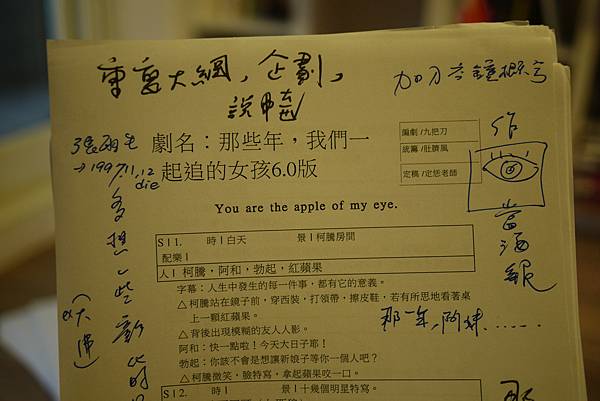 重寫大綱,企劃,
說明
張雨生
→1997.11.12
die
劇名:那些年,我們一
起追的女孩6.0版
編劇/九把刀
統籌/肚臍風
定稿/定恁老師
You are the apple of my eye.
S|1. 時|白天 景|柯騰房間
配樂|
人|柯騰,阿和,勃起,紅蘋果
字幕:人生中發生的每一件事,都有它的意義。
△柯騰站在鏡子前,穿西裝,打領帶,擦皮鞋,若有所思地看著桌
上一顆紅蘋果。
△背後出現模糊的友人人影。
阿和:快一點啦!今天大日子耶!
勃起:你該不會是想讓新娘子等你一個人吧?
△柯騰微笑,臉特寫,拿起蘋果咬一口。
S|2. 時| 景|十幾個明星特寫。
多想一些
作
當海報
那一年,阿妹......